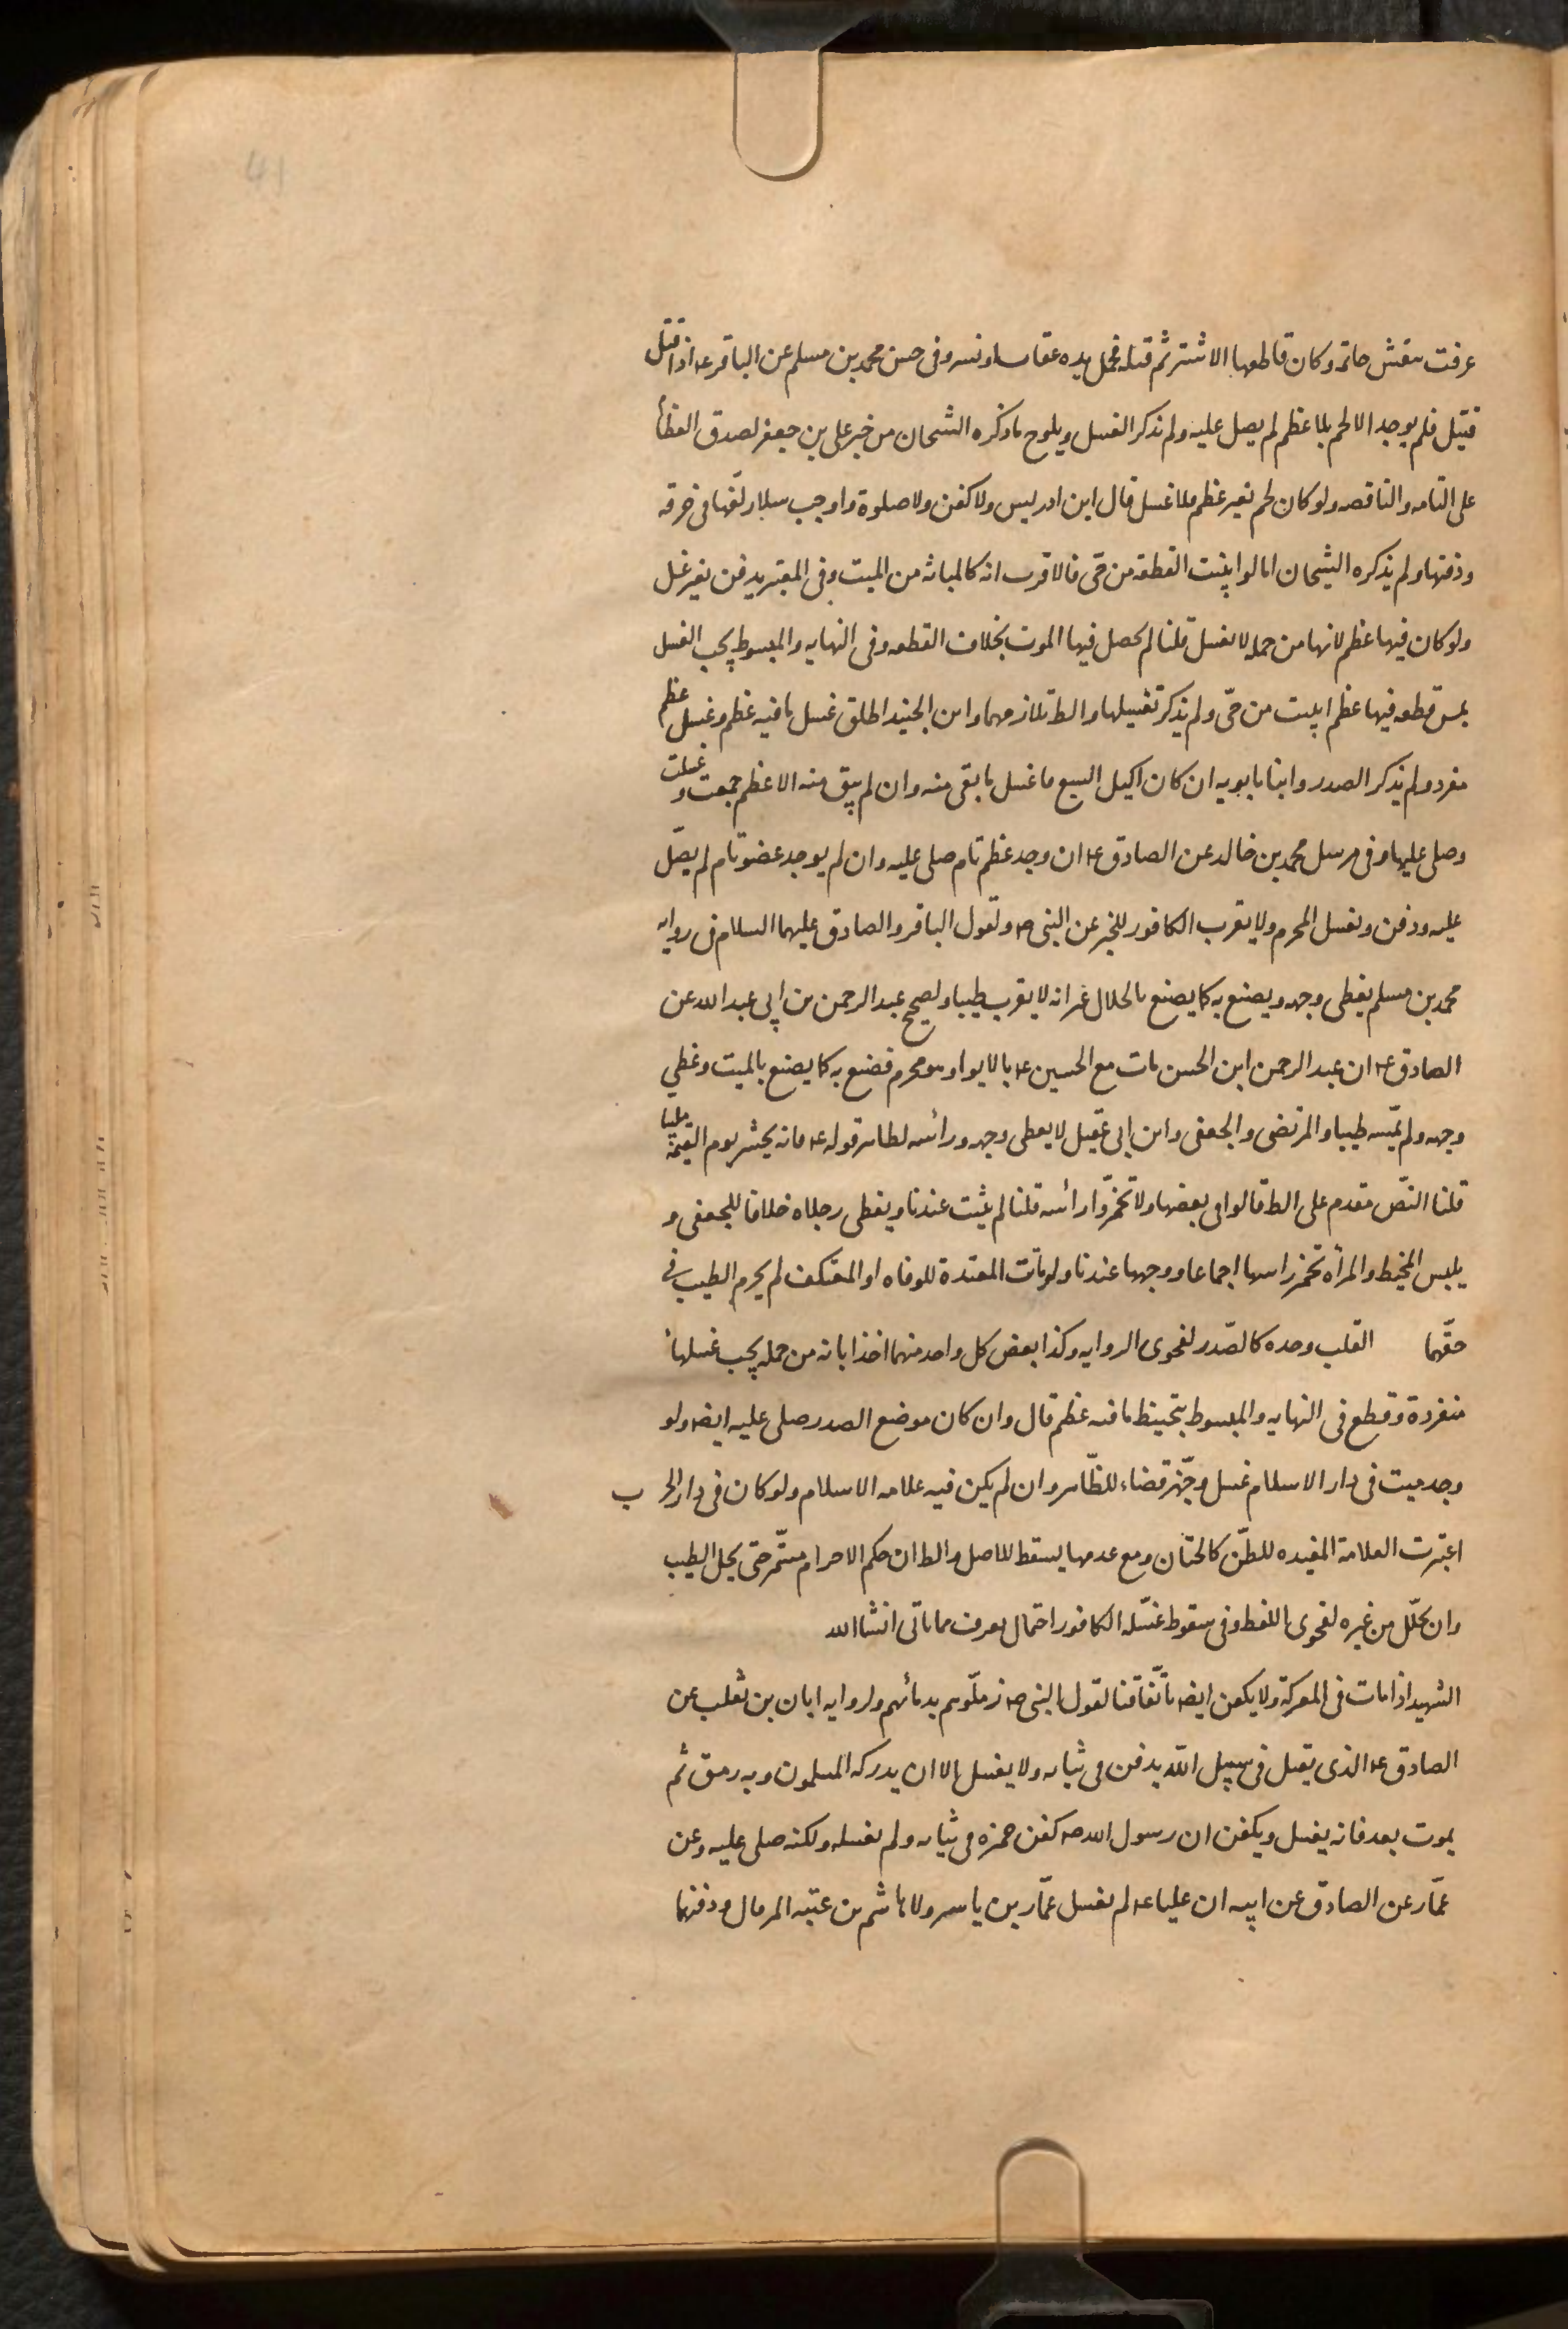 41
عرفت بنقش خاتمه وكان قاطعها الاشتر ثم قتله فحمل يده عقاب او نسر وفى حسن محمد بن مسلم عن الباقر عه اذا قتل
قتيل فلم يوجد الا لحم بلا عظم لم يصل عليه ولم نذكر الغسل ويلوح ما ذكره الشيخان من خبر على بن جعفر لصدق العظام
على التامه والناقصه ولو كان لحم بغير عظم فلا غسل قال ابن ادريس ولا كفن ولا صلوة واوجب سلار لفها فى خرقه
ودفنها ولم يذكره الشيخان اما لو ابينت القطعه من حى فالاقرب انه كالمبانه من الميت وفى المعتبر يدفن بغير غسل
ولو كان فيها عظم لانها من جمله لا يغسل قلنا لم يحصل فيها الموت بخلاف القطعه وفى النهايه والمبسوط يجب الغسل
بمس قطعه فيها عظم ابينت من حى ولم يذكر تغسيلها والظ تلازمهما وابن الجنيد اطلق غسل ما فيه عظم وغسل عظم
مفرد ولم يذكر الصدر وابنا بابويه ان كان اكيل السبع ما غسل ما بقى منه وان لم يبق منه الا عظم جمعت وغسلت
وصلى عليها وفى مرسل محمد بن خالد عن الصادق عه ان وجد عظم تام صلى عليه وان لم يوجد عضو تام لم يصل
عليه ودفن ويغسل المحرم ولا يقرب الكافور للخبر عن النبى صه ولقول الباقر والصادق عليهما السلام فى روايه
محمد بن مسلم يغطى وجهه ويصنع به كما يصنع بالحلال غير انه لا يقرب طيبا ولصحيح عبد الرحمن بن ابى عبد الله عن
الصادق عه ان عبد الرحمن ابن الحسن مات مع الحسين عه بالابوا وهو محرم فصنع به كما يصنع بالميت وغطي
وجهه ولم يمسه طيبا والمرتضى والجعفى وابن ابى عقيل لا يغطى وجهه ورأسه لظاهر قوله عه فانه يحشر يوم القيمة ملبيا
قلنا النص مقدم على الظ قالوا فى بعضها ولا تخمروا رأسه قلنا لم يثبت عندنا ويغطى رجلاه خلافا للجعفى و
يلبس المخيط والمرأه تخمر راسها اجماعا ووجهها عندنا ولو ماتت المعتدة للوفاه او المعتكف لم يحرم الطيب فى
حقهما    القلب وحده كالصدر لفحوى الروايه وكذا بعض كل واحد منهما اخذا بانه من جمله يجب غسلها
منفردة وقطع فى النهايه والمبسوط بتحنيط ما فيه عظم قال وان كان موضع الصدر صلى عليه ايضه ولو
وجد ميت فى دار الاسلام غسل وجهز قضاء للظاهر وان لم يكن فيه علامه الاسلام ولو كان فى دار الحرب
اعتبرت العلامة المفيده للظن كالختان ومع عدمها يسقط للاصل والظ ان حكم الاحرام مستمر حتى يحل الطيب
وان تحلل من غيره لفحوى اللفظ وفى سقوط غسله الكافور احتمال يعرف مما ياتى انشا الله
الشهيد اذا مات فى المعركة ولا يكفن ايضه باتفاقنا لقول النبى صه زملوهم بدمائهم ولروايه ابان بن تغلب عن
الصادق عه الذى يقتل فى سبيل الله يدفن فى ثيابه ولا يغسل الا ان يدركه المسلمون وبه رمق ثم
يموت بعد فانه يغسل ويكفن ان رسول الله صه كفن حمزه فى ثيابه ولم يغسله ولكنه صلى عليه وعن
عمار عن الصادق عن ابيه ان عليا عه لم يغسل عمار بن ياسر ولا هاشم بن عتبه المرقال ودفنهما